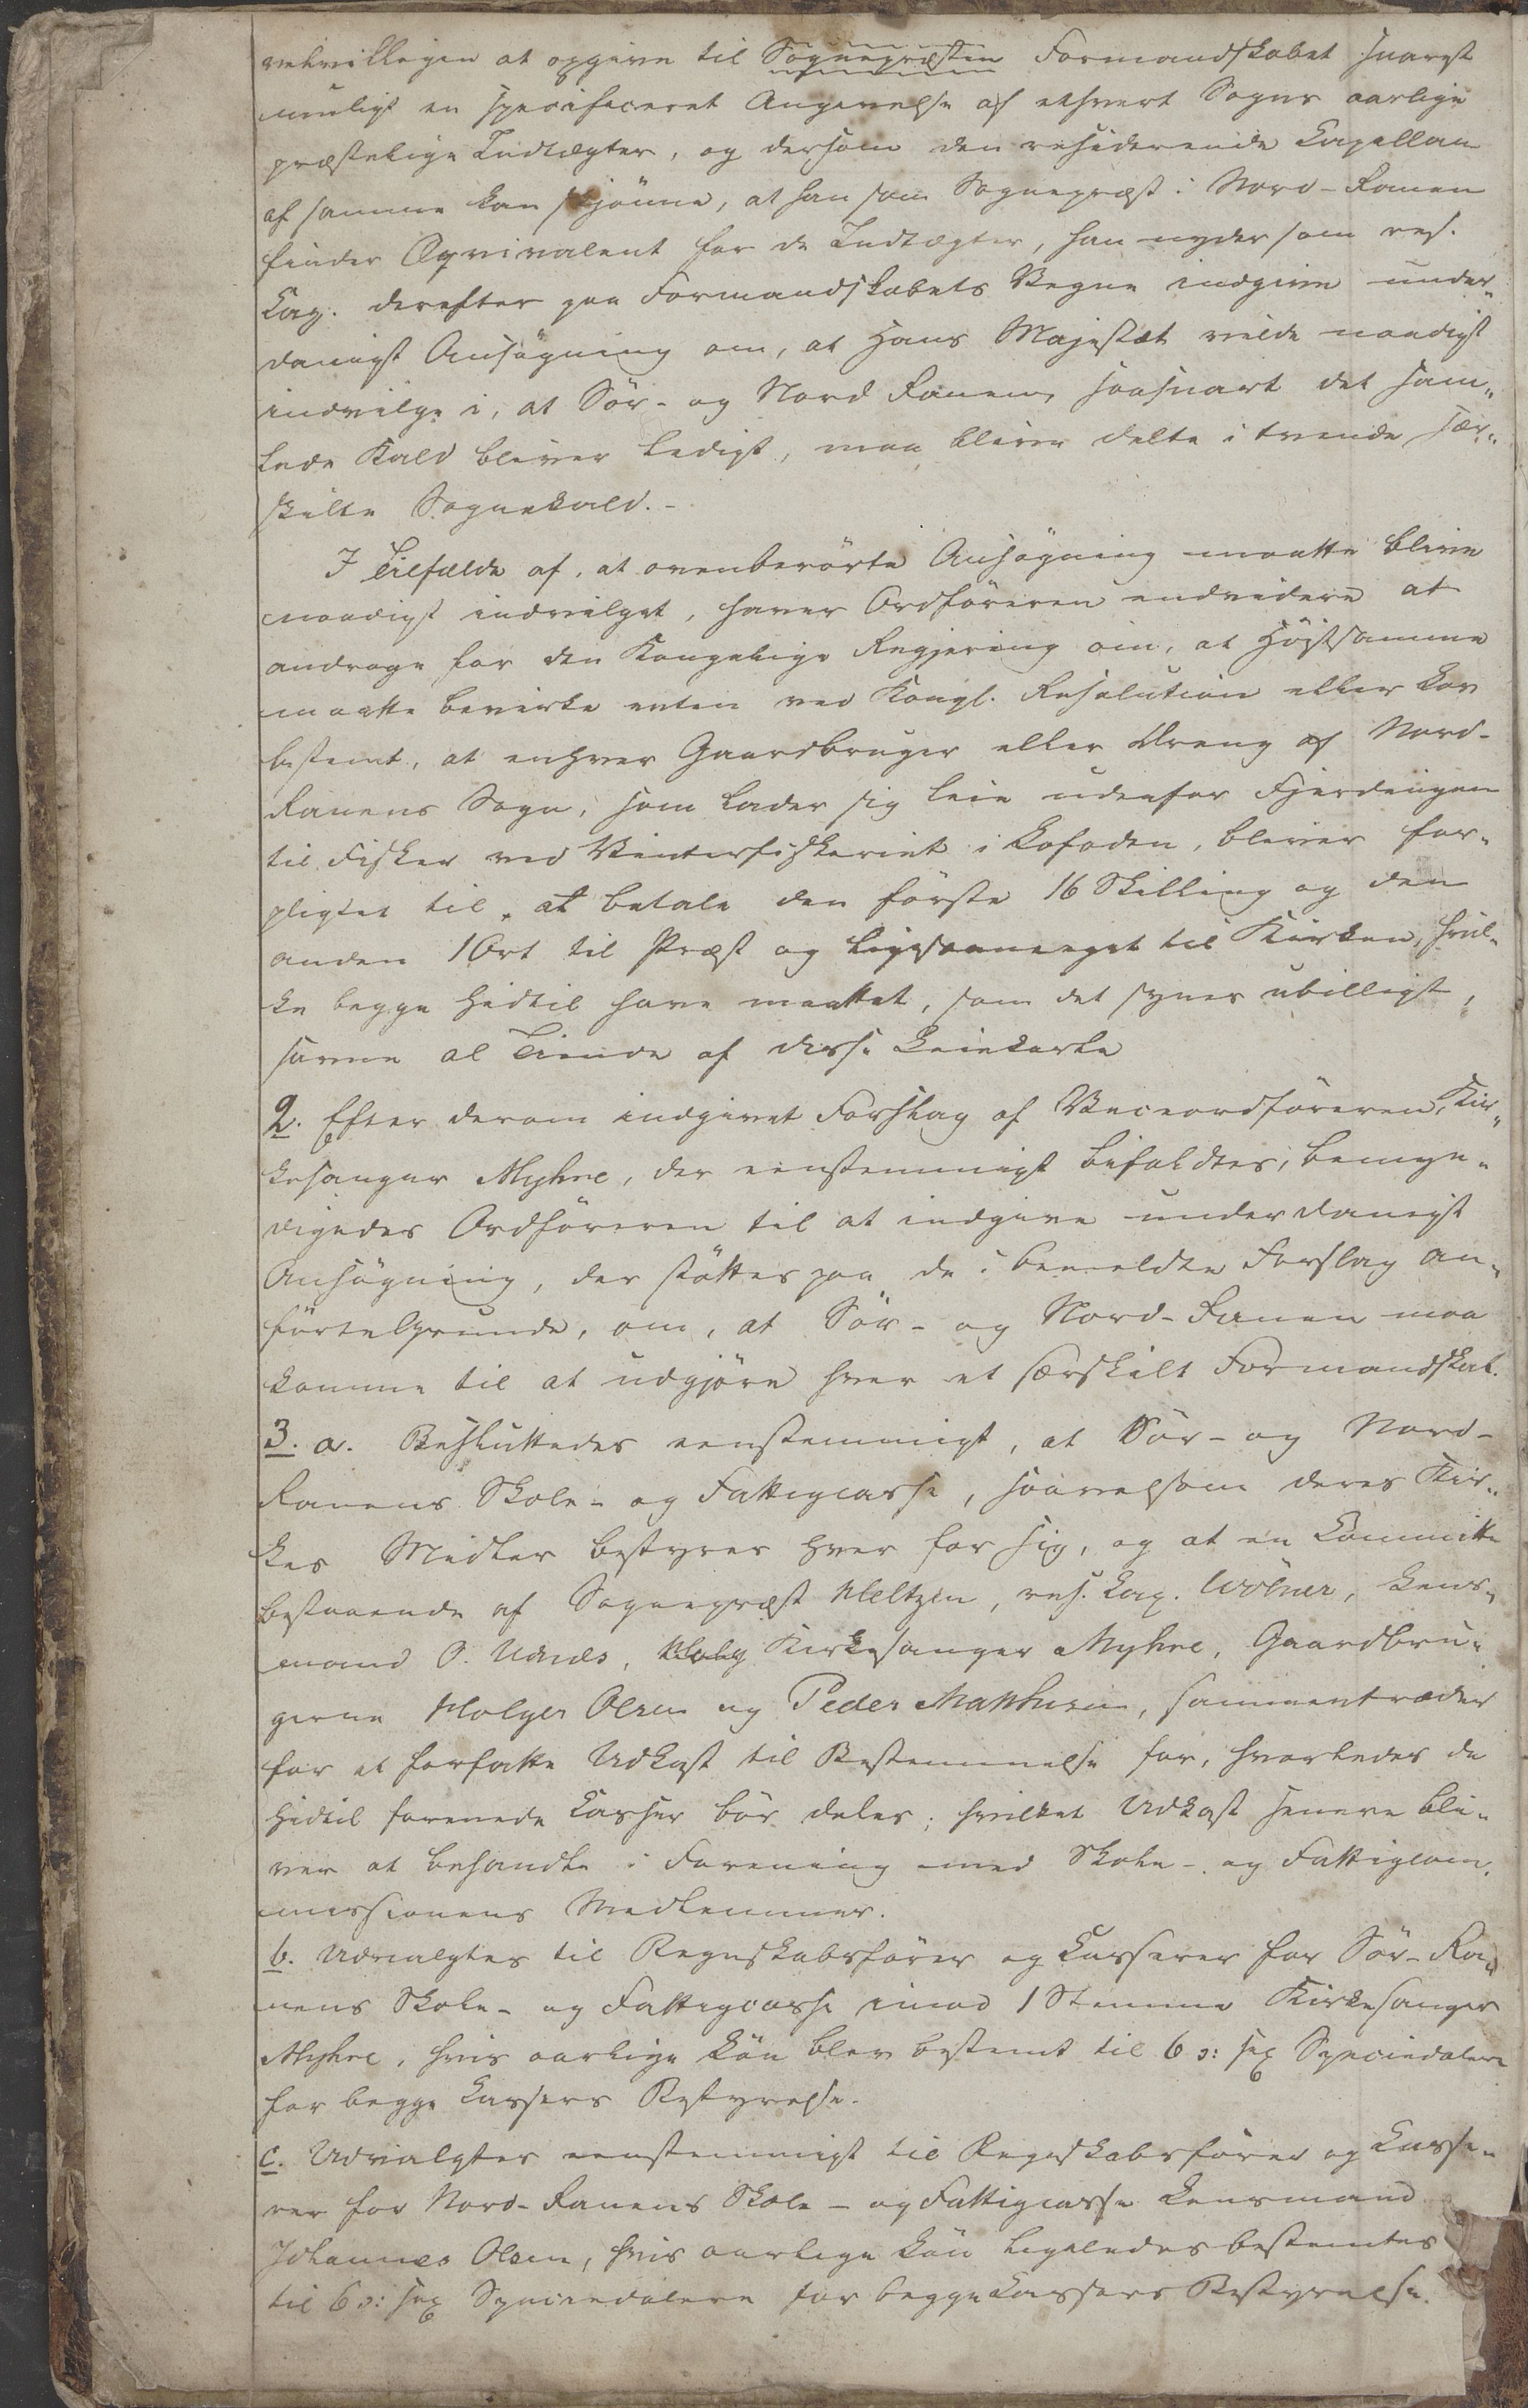 velvilligen at opgive til Sognepræsten Formandskabet snarest
muligt en specificeret Angivelse af ethvert Sogns aarlige
præstelige Indtægter, og dersom den residerende Capellan
af samme kan skjönne, at han som Sognepræst i Nord-Ranen
finder Æqvivalent for de Indtægter, han nyder som res.
Cap. derefter paa Formandskabets Vegne indgive under„
danigst Ansögning om, at Hans Majestæt vilde naadigst
indvilge i, at Sör- og Nord Ranen, saasnart det sam„
lede Kald bliver ledigt, maa blive delte i tvende sær„
skilte Sognekald. -
I Tilfælde af, at ovenberörte Ansögning maatte blive
naadigst indvilget, haver Ordföreren endvidere at
androge for den Kongelige Regjering om, at Höistsamme
maatte bevirke enten ved Kongl. Resolution eller Lov
bestemt, at enhver Gaardbruger eller Dreng af Nord-
Ranens Sogn, som lader sig leie udenfor Fjerdingen
til Fisker ved Vinterfiskeriet i Lofoden, bliver for„
pligtet til, at betale den förste 16 Skilling og den
anden 1 Ort til Præst og ligesaameget til Kirken, hvil„
ke begge hidtil have maattet, som det synes ubilligt,
savne al Tiende af disse Leiekarle
2. Efter derom indgivet Forslag af Viceordföreren, Kir„
kesanger Myhre, der eenstemmigt bifaldtes, bemyn„
digedes Ordföreren til at indgive underdanigst
Ansögning, der stöttes paa de i bemeldte Forslag an„
förte Grunde, om, at Sör- og Nord-Ranen maa
komme til at udgjöre hver et særskilt Formandskab.
3. a. Besluttedes eenstemmigt, at Sör- og Nord-
Ranens Skole- og Fattigcasse, saavelsom deres Kir„
kes Midler bestyres hver for sig, og at en Committe
bestaaende af Sognepræst Heltzen, res. Cap. Wölner, Lens„
mand O. Udnes, Holg Kirkesanger Myhre, Gaardbru„
gerne Holger Olsen og Peder Matthisen, sammentræder
for at forfatte Udkast til Bestemmelse for, hvorledes de
hidtil forenede Casser bör deles; hvilket Udkast senere bli„
ver at behandle i Forening med Skole- og Fattigcom„
missionens Medlemmer.
b. Udvalgtes til Regnskabsförer og Casserer for Sör-Ra„
nens Skole- og Fattigcasse imod 1 Stemme Kirkesanger
Myhre, hvis aarlige Lön blev bestemt til 6 ɔ: sex Speciedalere
for begge Cassers Bestyrelse.
c. Udvalgtes eenstemmigt til Regnskabsförer og Casse„
rer for Nord-Ranens Skole- og Fattigcasse Lensmand
Johannes Olsen, hvis aarlige Lön ligeledes bestemtes
til 6 ɔ: sex Speciedalere for begge Cassers Bestyrelse.